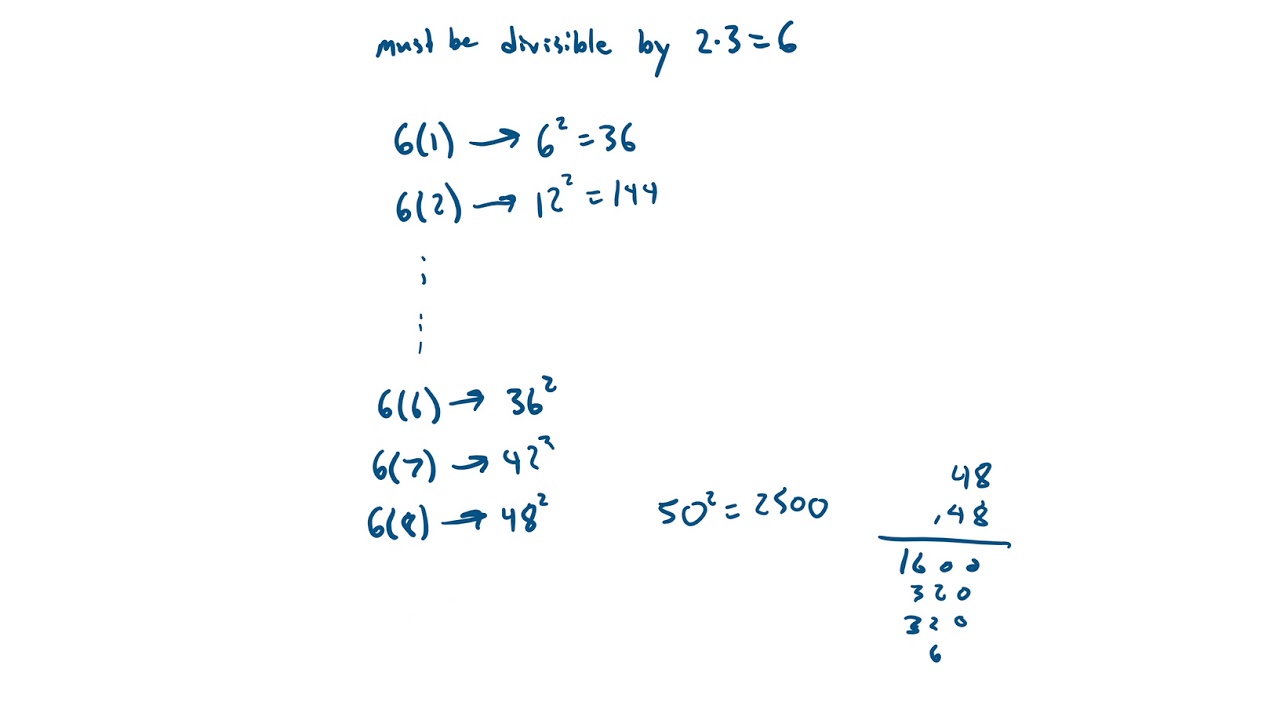 must be divisible by 2·3=6
6(1) → 6² = 36
6(2) → 12² = 144
6(6) → 36²
6(7) → 42²
6(8) → 48²
50² = 2500
48
·48
1600
320
320
6